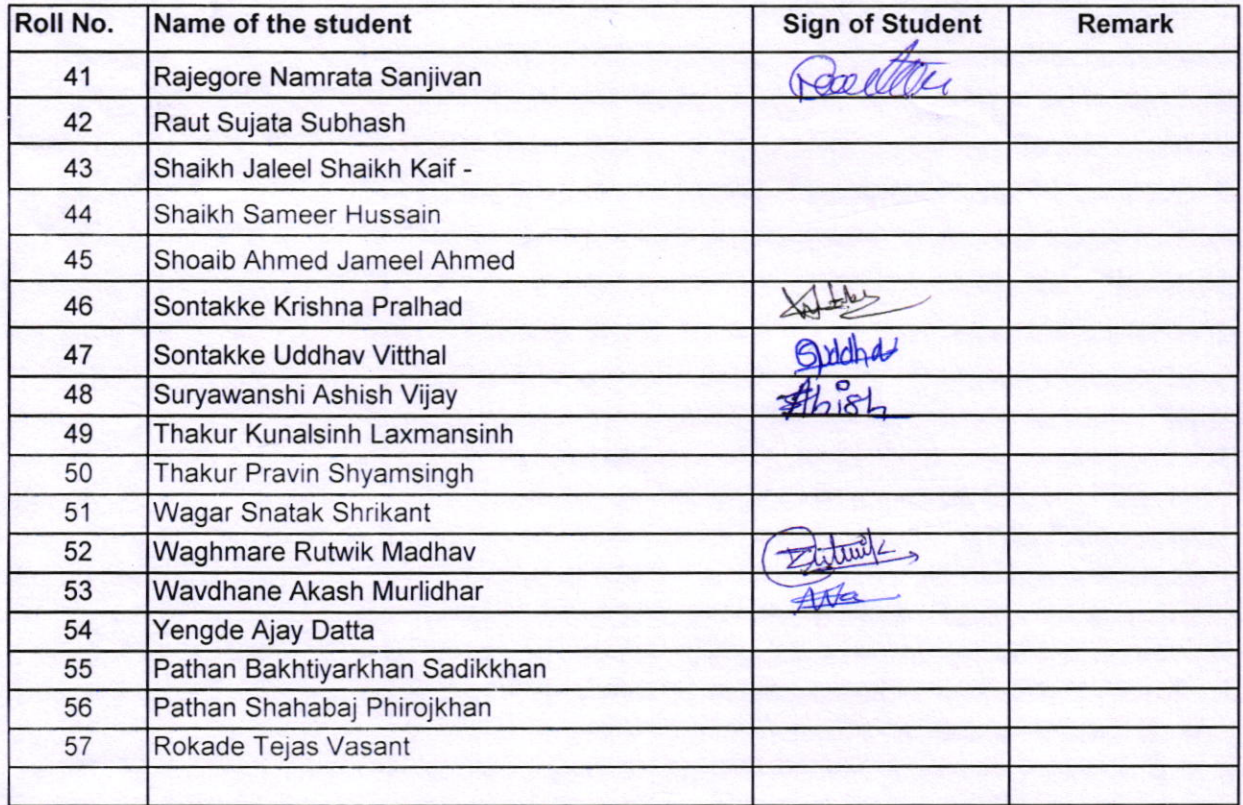 Roll No. Name of the student Sign of Student Remark
41 Rajegore Namrata Sanjivan
42 Raut Sujata Subhash
43 Shaikh Jaleel Shaikh Kaif -
44 Shaikh Sameer Hussain
45 Shoaib Ahmed Jameel Ahmed
46 Sontakke Krishna Pralhad
47 Sontakke Uddhav Vitthal
48 Suryawanshi Ashish Vijay Ashish
49 Thakur Kunalsinh Laxmansinh
50 Thakur Pravin Shyamsingh
51 Wagar Snatak Shrikant
52 Waghmare Rutwik Madhav
53 Wavdhane Akash Murlidhar
54 Yengde Ajay Datta
55 Pathan Bakhtiyarkhan Sadikkhan
56 Pathan Shahabaj Phirojkhan
57 Rokade Tejas Vasant